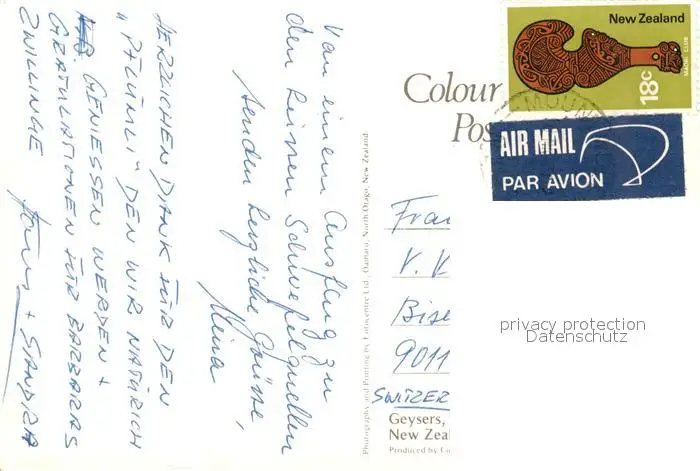 Von einem Ausflug zu
den heissen Schwefelquellen
senden herzliche Grüsse,
HERZLICHEN DANK FÜR DEN
"PFLÜMLI" DEN WIR NATÜRLICH
GENIESSEN WERDEN +
GRATULATIONEN FÜR BARBARAS
ZWILLINGE
+ SANDRA
Photography and Printing by Fotocentre Ltd., Oamaru, North Otago, New Zealand.
Colour
Pos
New Zealand
MAORI CLUB
18c
AIR MAIL
PAR AVION
Frau
V. V
Bise
9011
SWITZER
privacy protection
Datenschutz
Geysers,
New Zeal
Produced by